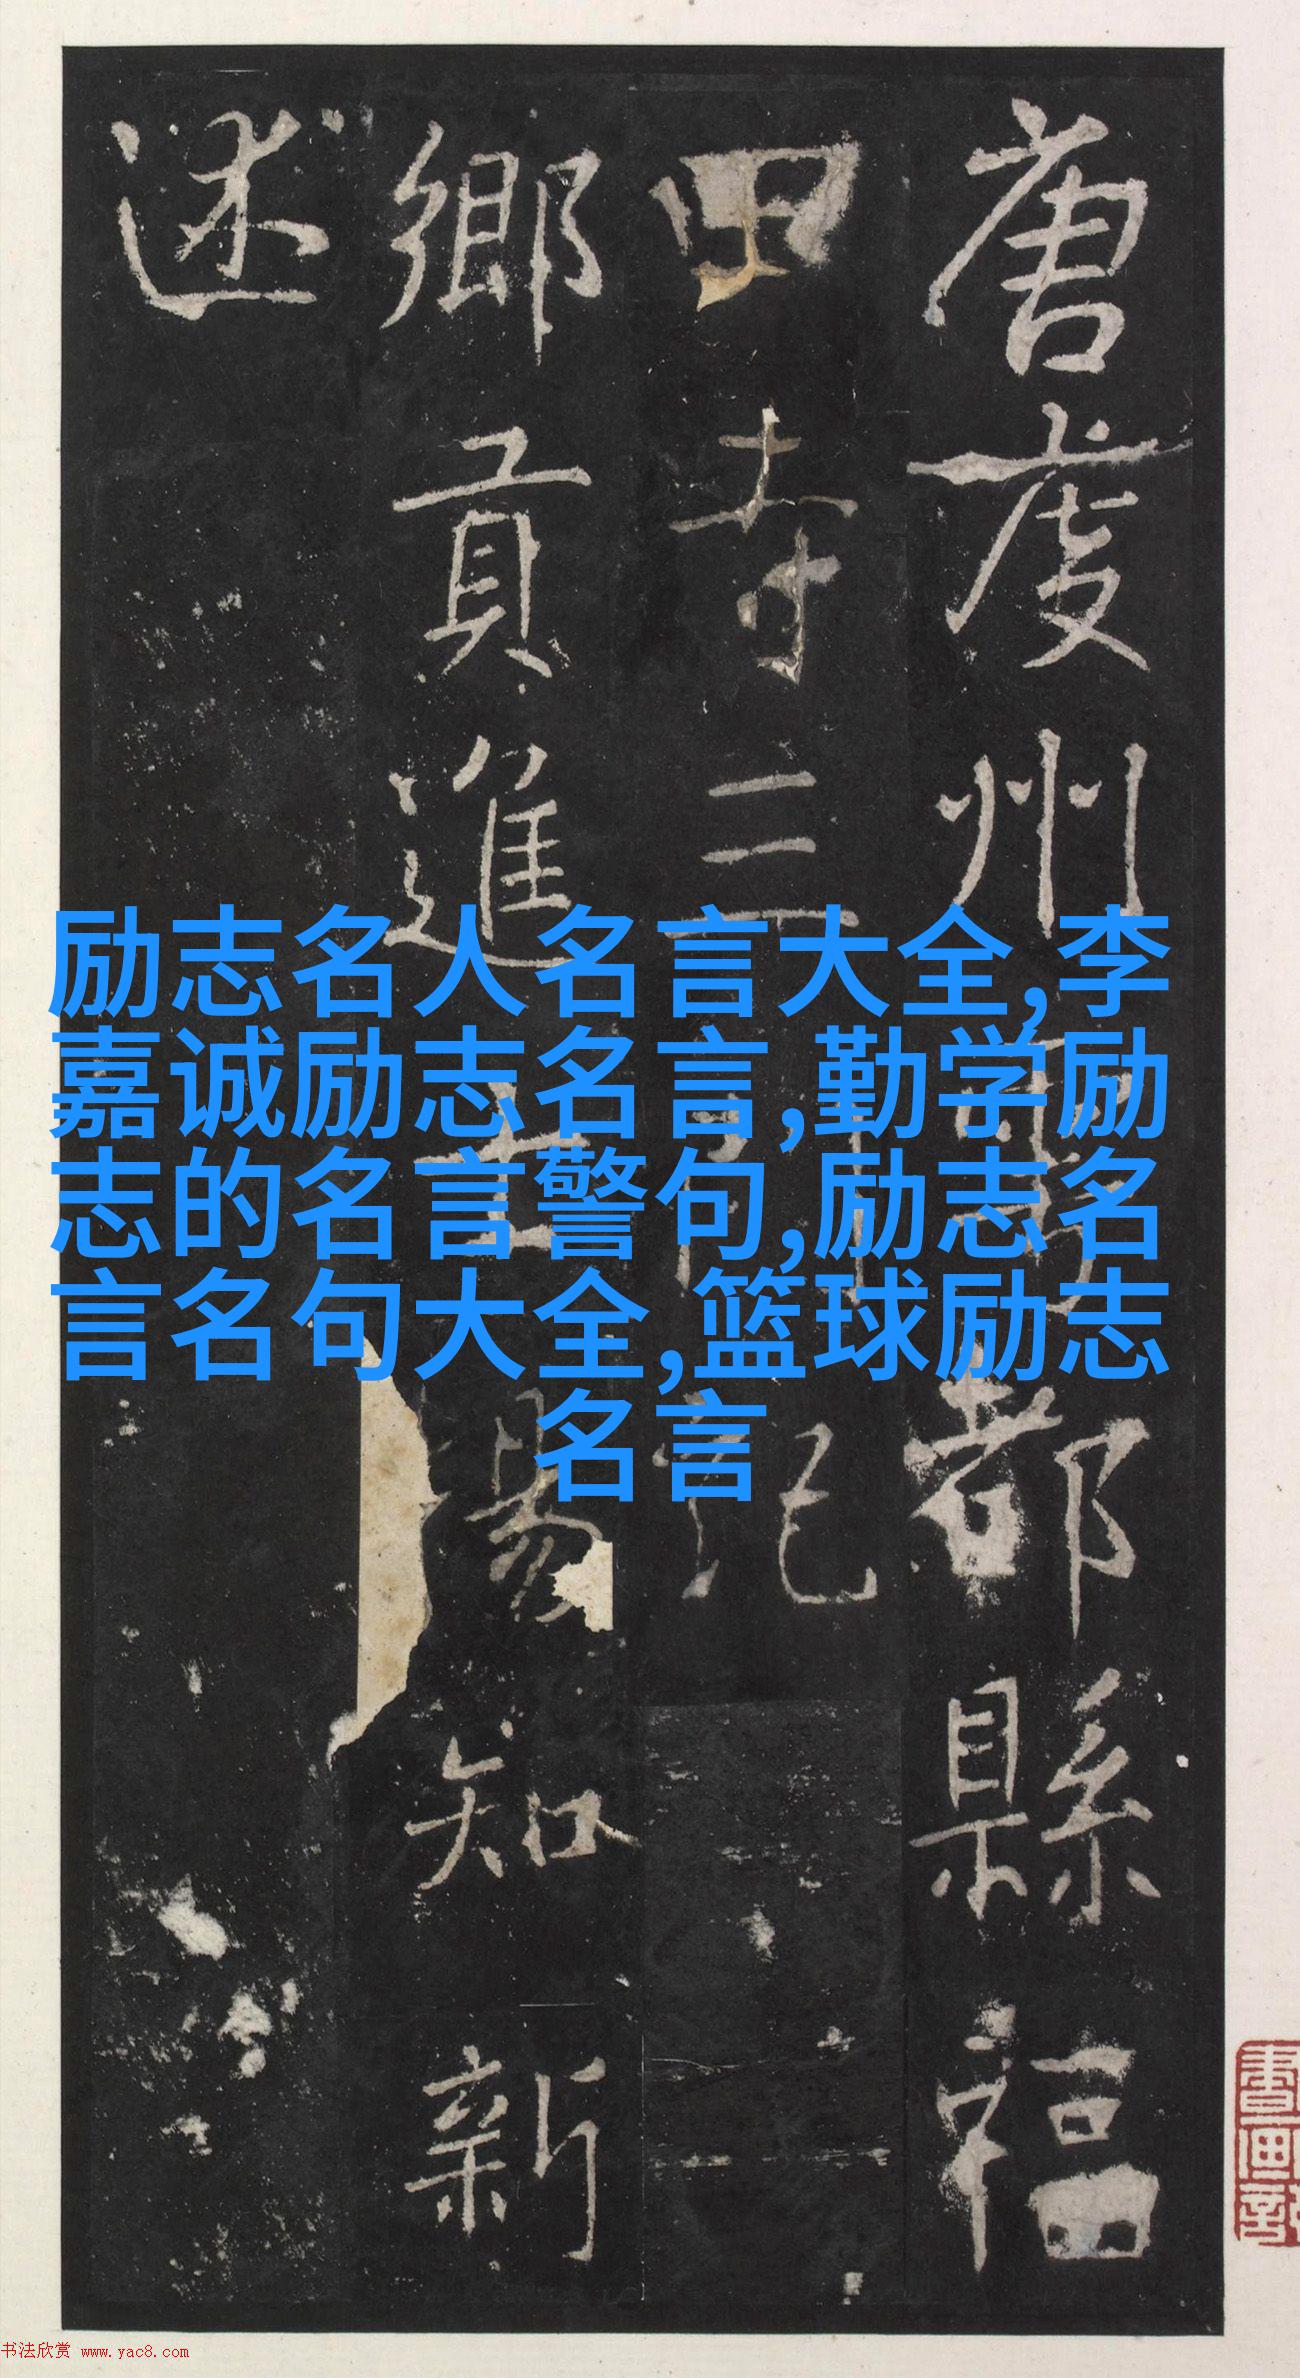 唐虔州雩都縣福
田寺三門記
鄉貢進士楊知新
述
励志名人名言大全,李
嘉诚励志名言,勤学励
志的名言警句,励志名
言名句大全,篮球励志
名言
書画
书法欣赏 www.yac8.com